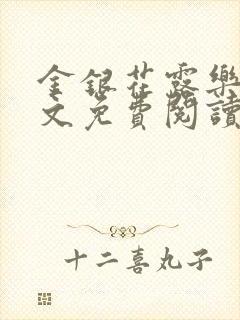 金銀花露樂
文免費閱讀
十二喜丸子